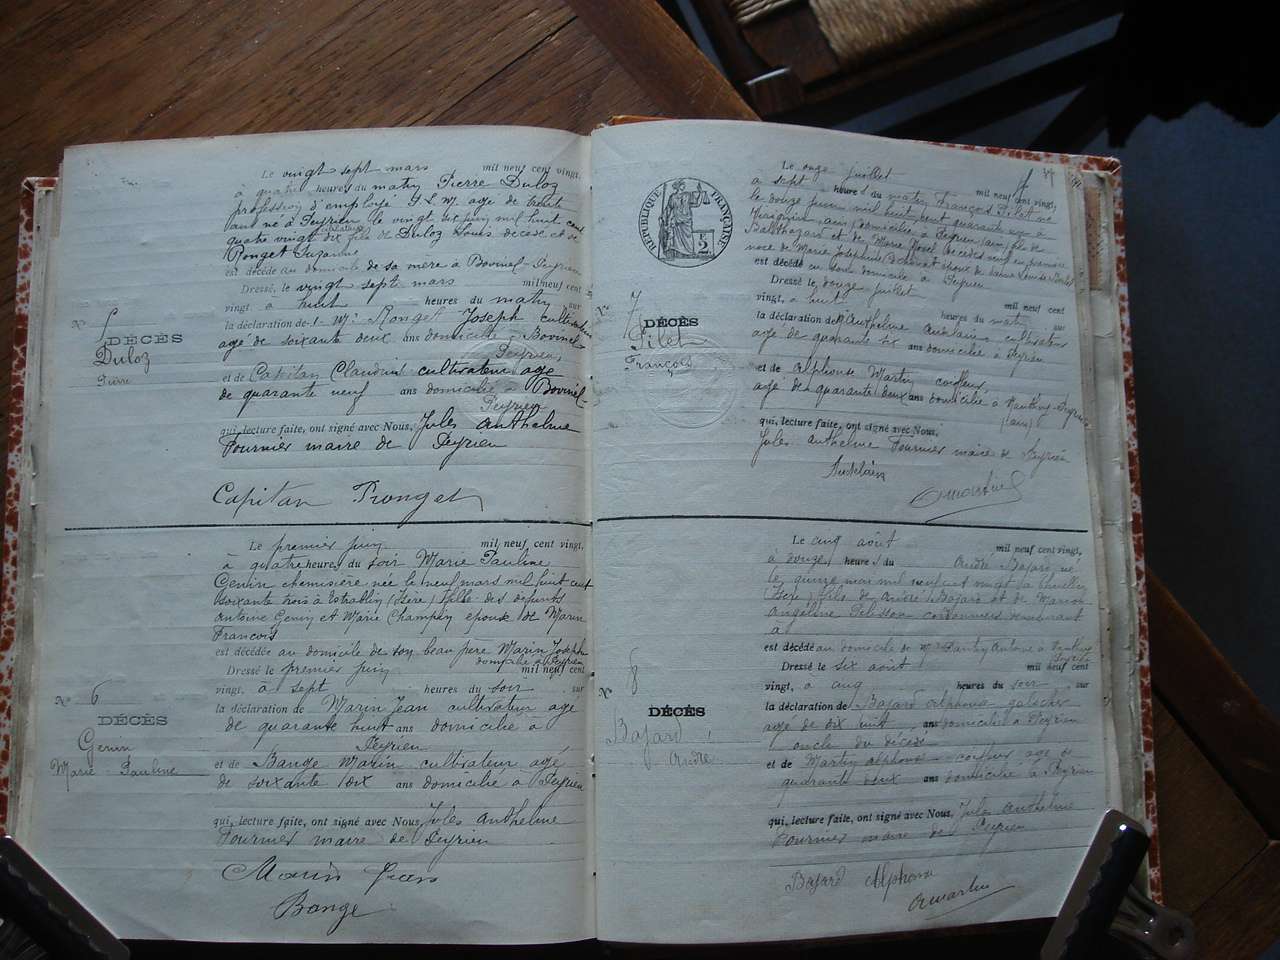 Le vingt sept mars mil neuf cent vingt,
à quatre heures du matin Pierre Duloz
profession d'employé P.L.M. age de trente
ans né à Peyrieu le vingt six juin mil huit cent
quatre vingt dix fils de Duloz Louis décédé et de
Ronget Suzanne
est décédé au domicile de sa mère à Bovinel-Peyrieu
Dressé, le vingt sept mars mil neuf cent
vingt, à huit heures du matin sur
la déclaration de Ronget Joseph cultivateur
age de soixante deux ans domicilié à Bovinel
Peyrieu,
et de Capitan Claudius cultivateur age
de quarante neuf ans domicilié à Bovinel-
Peyrieu
qui, lecture faite, ont signé avec Nous, Jules Anthelme
Fournier maire de Peyrieu
Capitan Ronget
N° 5
DÉCÈS
Duloz
Pierre
Le premier juin mil neuf cent vingt,
à quatre heures du soir Marie Pauline
Genin chemisière née le neuf mars mil huit cent
soixante trois à Estrablin (Isère) fille des défunts
Antoine Genin et Marie Champin epouse de Marin
François
est décédée au domicile de son beau père Marin Joseph
domicilié à Peyrieu
Dressé le premier juin mil neuf cent
vingt, à sept heures du soir sur
la déclaration de Marin Jean cultivateur age
de quarante huit ans domicilié à
Peyrieu
et de Bange Marin cultivateur agé
de soixante dix ans domicilié à Peyrieu
qui, lecture faite, ont signé avec Nous, Jules Anthelme
Fournier maire de Peyrieu
Marin Jean
Bange
N° 6
DÉCÈS
Genin
Marie Pauline
RÉPUBLIQUE FRANÇAISE
2
Le onze juillet mil neuf cent vingt,
à sept heures du matin François Pilet né
le douze juin mil huit cent quarante un à
domicilié à Peyrieu (ain) fils de
Balthazard et de Marie décédés en première
noce de Marie Josephine
est décédé en son domicile à Peyrieu
Dressé le douze juillet mil neuf cent
vingt, à huit heures du matin sur
la déclaration de Anthelme Audelain cultivateur
agé de quarante six ans domicilié à Peyrieu
et de Alphonse Martin coiffeur
agé de quarante deux ans domicilié à
(ain)
qui, lecture faite, ont signé avec Nous,
Jules Anthelme Fournier maire de Peyrieu
Audelain
Amartin
N° 7
DÉCÈS
Pilet
François
Le cinq août mil neuf cent vingt,
à douze heures du André Bajard né
le quinze mai mil neuf cent vingt à
(Isère) fils de André Bajard et de Marion
Angéline Pelisson cordonniers demeurant
à
est décédé au domicile de
Dressé le six août mil neuf cent
vingt, à cinq heures du soir sur
la déclaration de Bajard Alphonse galocher
agé de dix huit ans domicilié à Peyrieu
oncle du décédé
et de Martin alphonse coiffeur age de
quarante deux ans domicilié à Peyrieu
qui, lecture faite, ont signé avec Nous, Jules Anthelme
Fournier maire de Peyrieu
Bajard Alphonse
Amartin
N° 8
DÉCÈS
Bajard
André